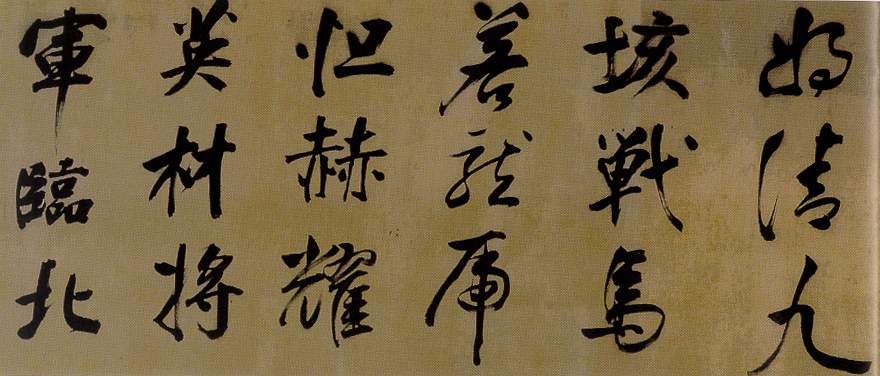 將清九
垓戰馬
若龍虎
烜赫耀
英材將
軍臨北